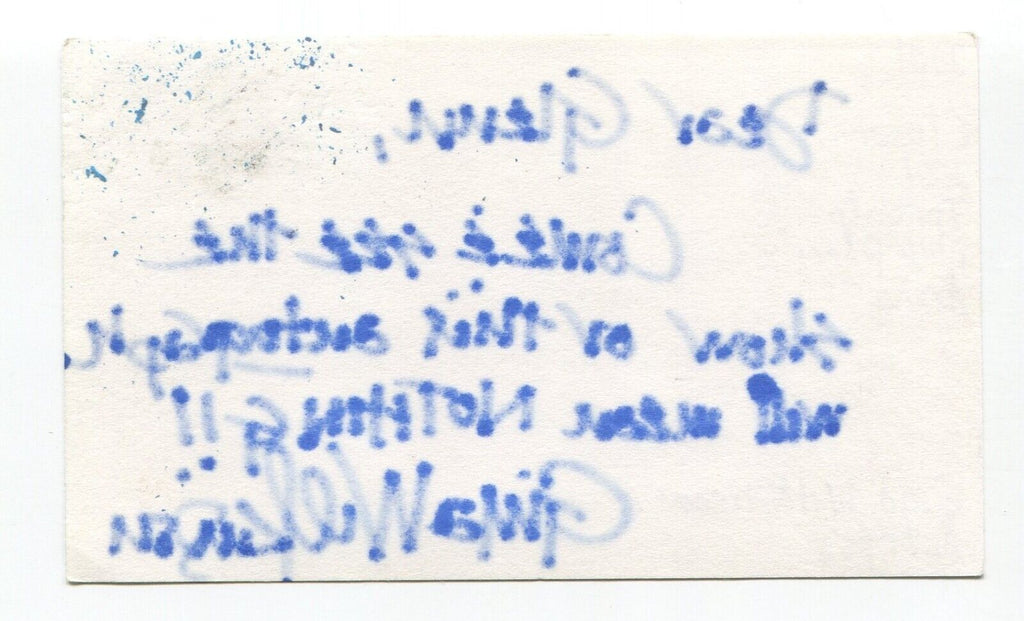 Dear Glenn,
Come see the
show or this autograph
will mean NOTHING!!
Gina Wilkinson